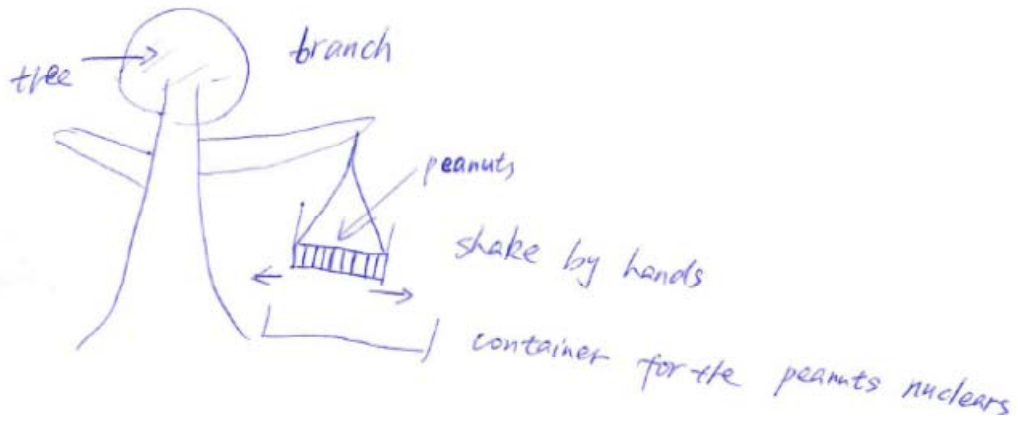 branch
tree
peanuts
shake by hands
container for the peanuts nuclears